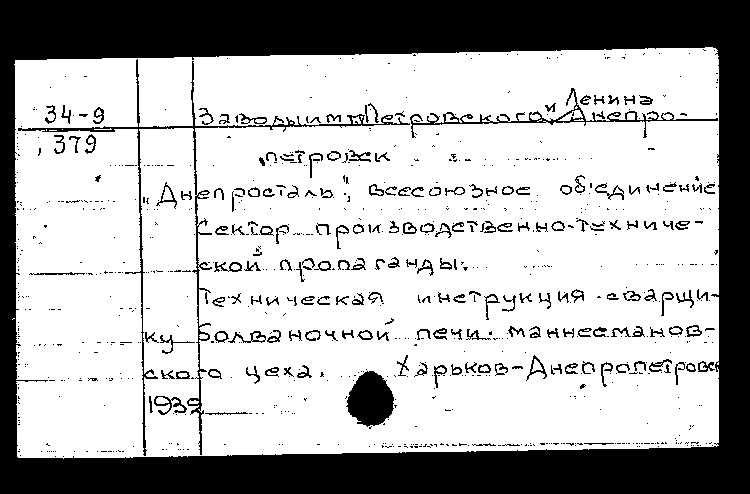 34-9
379
Заводы им Петровского и Ленина, Днепро-
петровск
„Днепросталь", всесоюзное об'единение
Сектор производственно-техниче-
ской пропаганды.
Техническая инструкция сварщи-
ку болваночной печи маннесманов-
ского цеха. Харьков-Днепропетровск
1932